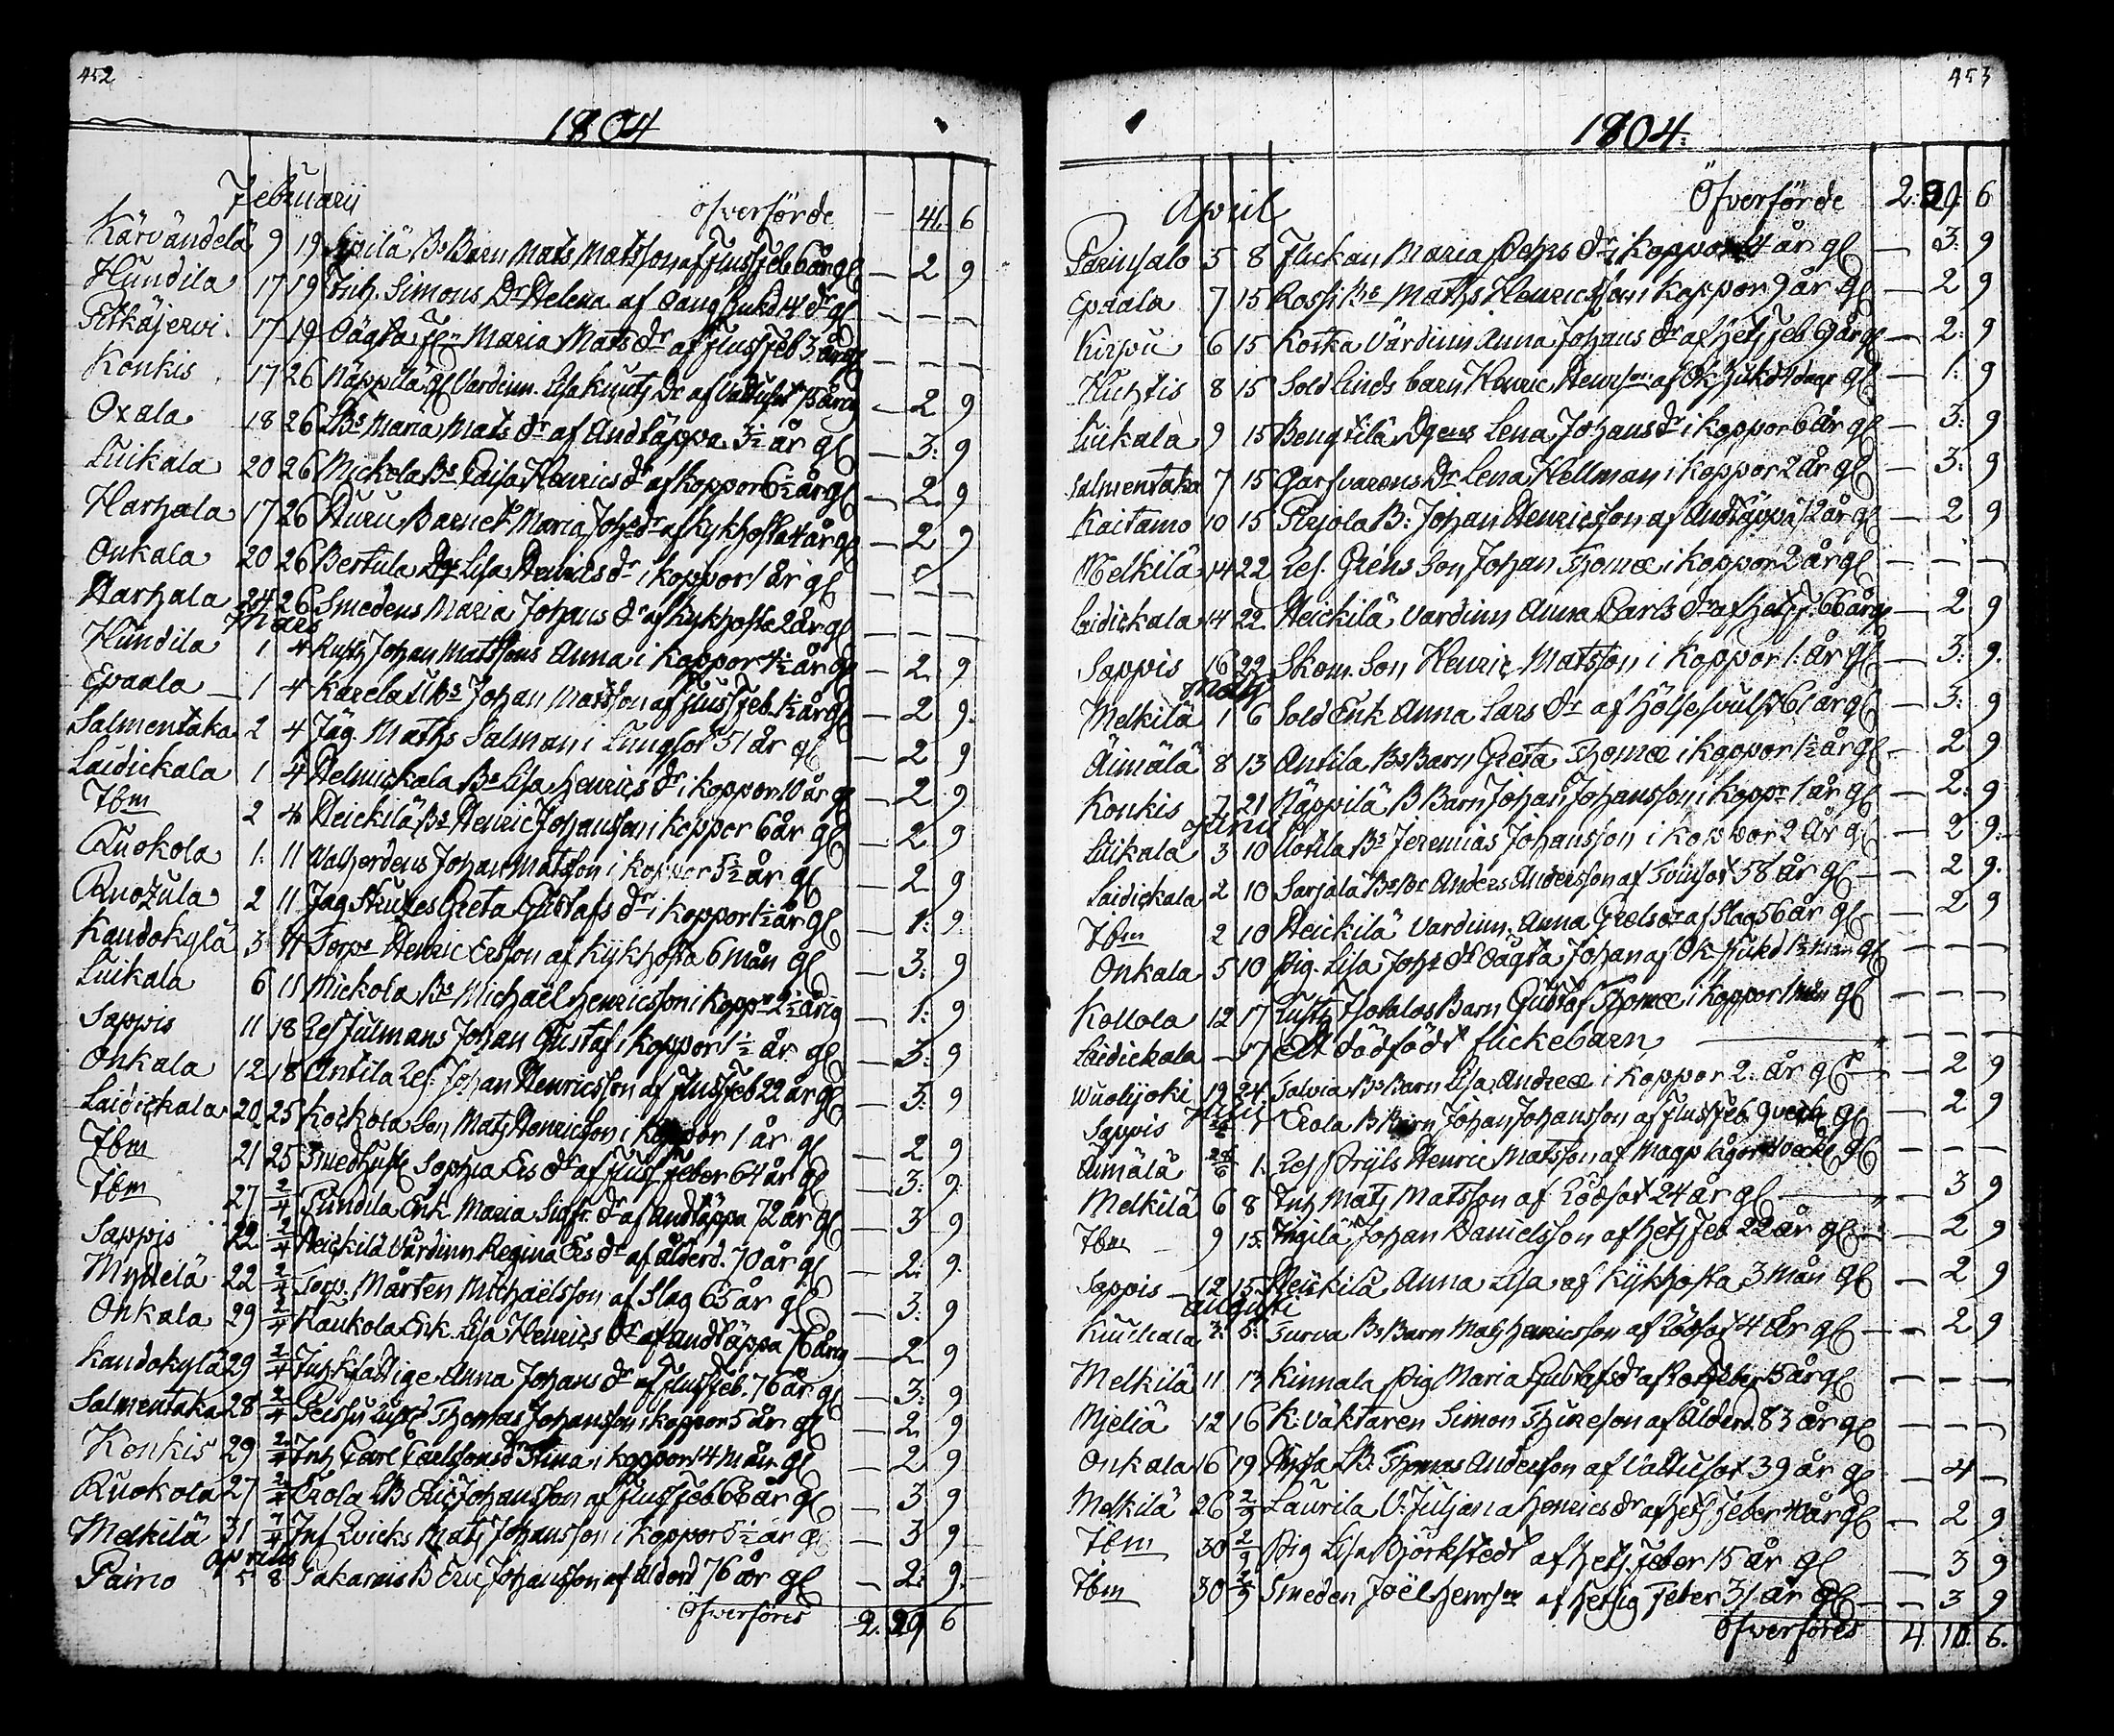 452
1804
Februarii Öfverförde — 41. 6
Kärvändelä 9 19 Sipilä Bs Barn Mats Matsson af flussfeb 6 år gl — 2 9
Hundila 17 19 Inh. Simons Dr Helena af 4 dr gl — — —
Pitkäjervi 17 19 Oägta fln Maria Mats dr af fluss feb 3 år gl — — —
Konkis 17 26 Näppilä gl Vardinn. Lisa Knuts Dr af Vattusot 75 år gl — 2 9
Oxala 18 26 Bs Maria Mats dr af Andtäppa 3½ år gl — 3: 9
Luikala 20 26 Mickola Bs Caisa Henrics dr af koppor 6½ år gl — 2. 9
Harhala 17 26 Auru Barnet Maria Joh: dr af kykhosta 4 år gl — 2 9
Onkala 20 26 Bertula Dgs Lisa Henrics dr i koppor 1 år gl
Harhala 24 26 Smedens Maria Johans dr af kykhosta 2 år gl — — —
Mars
Hundila 1 4 Rusth Johan Matssons Anna i koppor 4½ år gl — 2. 9
Epaala — 1 4 Karela Johan Matsson af fluss feb. ½ år gl — 2 9.
Salmentaka 2 4 Jäg. Maths Salman i Lungsot 51 år gl — 2 9
Laidickala 1 4 Helmickala Bs Lisa henrics dr i koppor 10 år gl — 2 9
Ibm 2 4 Heickilä Bs Henric Johansson i koppor 6 år gl — 2 9
Ruokola 1. 11 Johan Matsson i koppor 5½ år gl — 2 9
Ruozula 2 11 Jäg Greta Gustafs dr i koppor 1½ år gl — 1: 9.
Kandokylä 3 11 Torp. Henric Ersson af kykhosta 6 mån gl — 3: 9
Luikala 6 11 Mickola Bs Michaël henricsson i kopp 2½ år gl — 1: 9
Sappis 11 18 Ref Julmans Johan Gustaf i koppor 1½ år gl — 3: 9
Onkala 12 18 Antila Ref. Johan Henricsson af fluss feb 22 år gl — 3: 9
Laidickala 20 25 Kockola Son Mats Henricsson i koppor 1 år gl — 2 9
Ibm 21 25 Sophia Ers dr af fluss feber 64 år gl — 3: 9.
Ibm 27 2/4 Pundila Enk Maria Sigfr. dr af Andtäppa 72 år gl — 3 9
Sappis 22 2/4 Heickilä Vårdinn Regina Ers dr af ålderd. 70 år gl — 2: 9.
Myttelä 22 2/4 Torp. Mårten Michaëlsson af Slag 65 år gl — 3: 9
Onkala 29 2/4 Kaukola Enk. Lisa Henrics dr af andtäppa 76 år gl — 2 9
Kandokylä 29 2/4 Inh fattige Anna Johans dr af fluss feb. 76 år gl — 3: 9
Salmentaka 28 2/4 Thomas Johansson i koppor 5 år gl — 2. 9
Konkis 29 2/4 Inh Carl Carlssons dr Stina i koppor 14 mån gl — 2 9
Ruokola 27 2/4 Erola LB Eric Johansson af fluss feb 66 år gl — 3 9
Melkilä 31 2/4 Inh Qvicks Mats Johansson i koppor 5½ år gl — 3 9
Aprilis
Paino 5 8 Pakarais B Eric Johansson af ålderd 76 år gl — 2: 9.
Öfverföres 2. 29 6
453
1804.
April Öfverförde 2: 29. 6
Parinsalo 5 8 Flickan Maria Pehrs dr i koppor 4 år gl — 3: 9
Epaala 7 15 Rossi Bs Maths Henricsson i koppor 9 år gl — 2 9
Kirsu 6 15 Koska Värdinn Anna Johans dr af hets feb år gl — 2: 9
Huhtis 8 15 Sold Linds barn Henric Henrson af Ok Sjukd dagr gl — 1: 9
Luikala 9 15 Bengtilä Dgens Lena Johans dr i koppor 6 år gl — 3: 9
Salmentaka 7 15 Garfvarens Dr Lena Hellman i koppor 2 år gl — 3: 9
Kaitamo 10 15 Perjola B: Johan Henricsson af Andtäppa 72 år gl — 2 9
Melkilä 14 22 Ref. Gréns Son Johan Thomæ i koppor 2 år gl — — —
Laidickala 14 22 Heickilä Vardinn Anna Carls dr af hets f. 66 år gl — 2 9
Sappis 16 22 Skom. Son Henric Matsson i koppor 1. år gl — 3: 9.
Maij
Melkilä 1 6 Sold Enk Anna Lars dr af 61 år gl — 3: 9
Äimälä 8 13 Antila Bs Barn Greta Thomæ i koppor 1½ år gl — 2 9
Konkis 7 21 Näppilä B Barn Johan Johansson i koppr 1 år gl — 2: 9
Junii
Luikala 3 10 Bs Jeremias Johansson i koppor 2 år gl — 2 9.
Laidickala 2 10 Sarjala Bs br Anders Andersson af 58 år gl — 2 9.
Ibm 2 10 Heickilä Vardinn. Anna af Slag 56 år gl — 2 9
Onkala 5 10 Pig. Lisa Johs dr Oägta Johan af Ok Sjukd 1½ mån gl — — —
Kollola 12 17 Rusth Barn Gustaf Thomæ i koppor 1 mån gl — — —
Laidickala — 17 Ett dödfödt flickebarn — — —
Wuolijoki 19 24 Salvia Bs Barn Lisa Andreæ i koppor 2. år gl — 2 9
Julii
Sappis 1 Erola B Barn Johan Johansson af fluss feb 9 veck gl — 2 9
Äimälä 24/6 1. Ref Prijls Henric Matsson af vecke gl — — —
Melkilä 6 8 Inh Mats Matsson af Rödsot 24 år gl — 3 9
Ibm — 9 15. Ingilä Johan Danielsson af hets feb 22 år gl — 2 9
Sappis — 12 15 Heickilä Anna Lisa af kykhosta 3 mån gl — 2 9
Augusti
Kuuhala 3. 5. Turva Bs Barn Mats henricsson af Rödsot 4 år gl — 2 9
Melkilä 11 12 Kinnala Pig Maria Gustafs dr af Rötfeber 15 år gl — — —
Mjeliä 12 16 K: väktaren Simon Thureson af Ålderd. 83 år gl — — —
Onkala 16 19 LB: Thomas Anderson af Vattusot 39 år gl — 4 —
Melkilä 26 2/9 Laurila V: Juljana henrics dr af hets feber 40 år gl — 2 9
Ibm 30 2/9 Pig Lisa Björkstedt af hets feber 15 år gl — 3 9
Ibm 30 2/9 Smeden Joël henrson af hetsig feber 31 år gl — 3 9
Öfverföres 4. 10. 6.